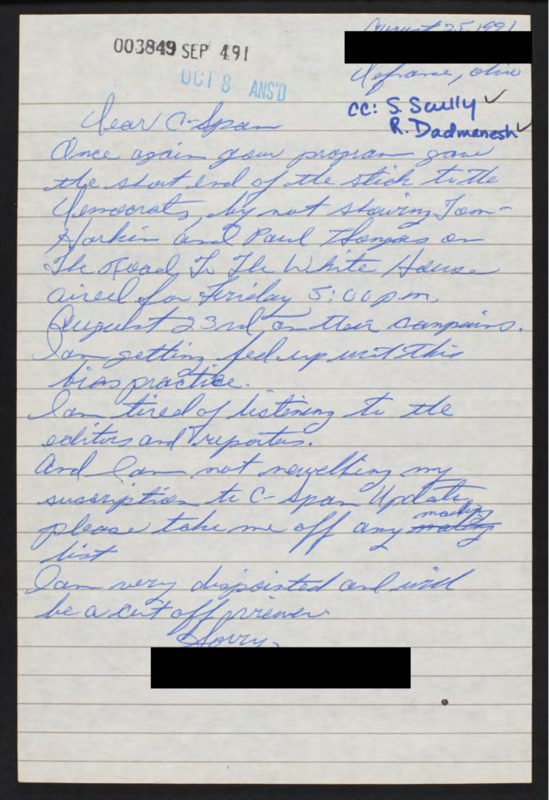 August 25, 1991
003849 SEP 4 91
Defiance, Ohio
OCT 8 ANS'D
cc: S. Scully ✓
R. Dadmanesh ✓
Dear C-Span
Once again your program gave
the short end of the stick to the
Democrats, by not showing Tom
Harkin and Paul Thongas on
The Road To The White House
aired for Friday 5:00 p.m.
August 23rd, on their campains.
I am getting fed up with this
bias practice.
I am tired of listening to the
editors and reporters.
And I am not newelling my
suscription to C-Span Update,
please take me off any mailing
list
I am very dispointed and will
be a cut off viewer
Sorry.